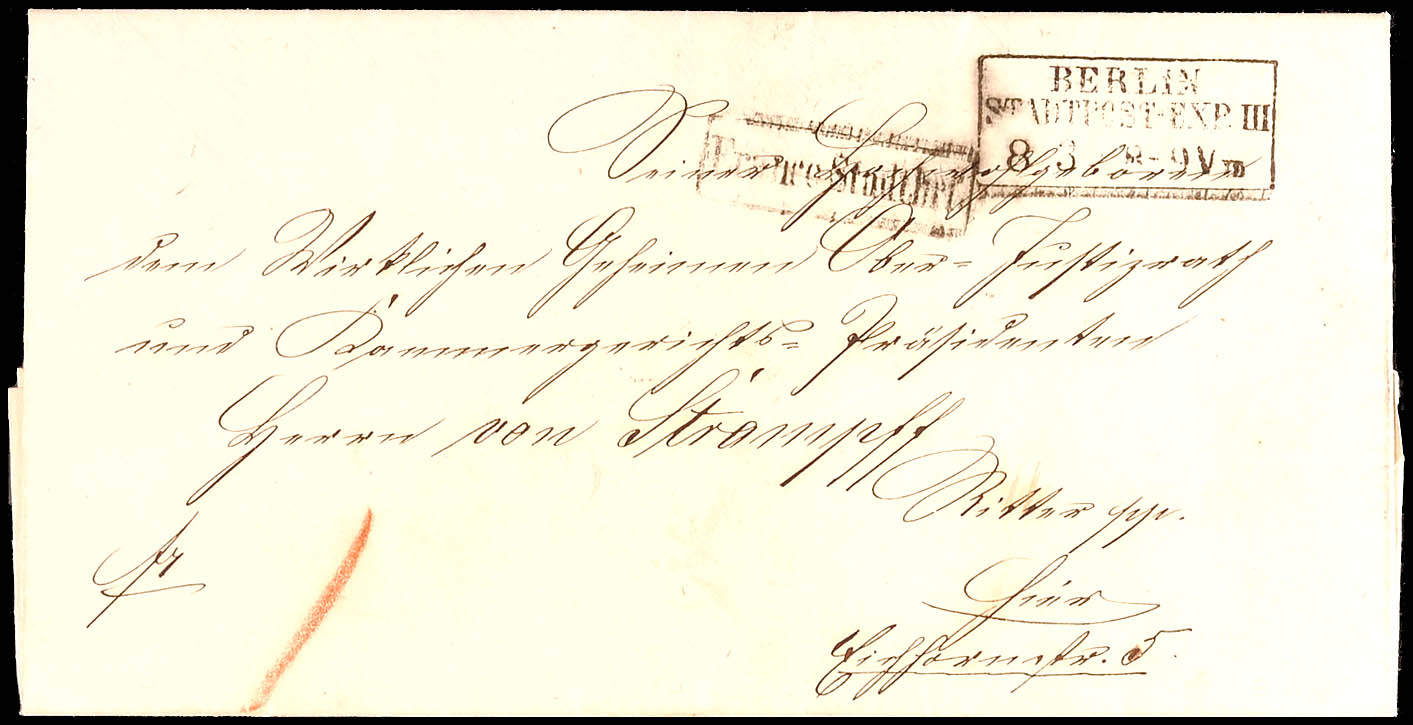 BERLIN
STADTPOST-EXP. III
8 3 8-9 Vm
Franco Stadtbrf
Seiner Hochwohlgeboren
dem Wirklichen Geheimen Ober-Justizrath
und Kammergerichts-Präsidenten
Herrn von Strampff
Ritter pp.
fr
hier
Eichhornstr. 5.